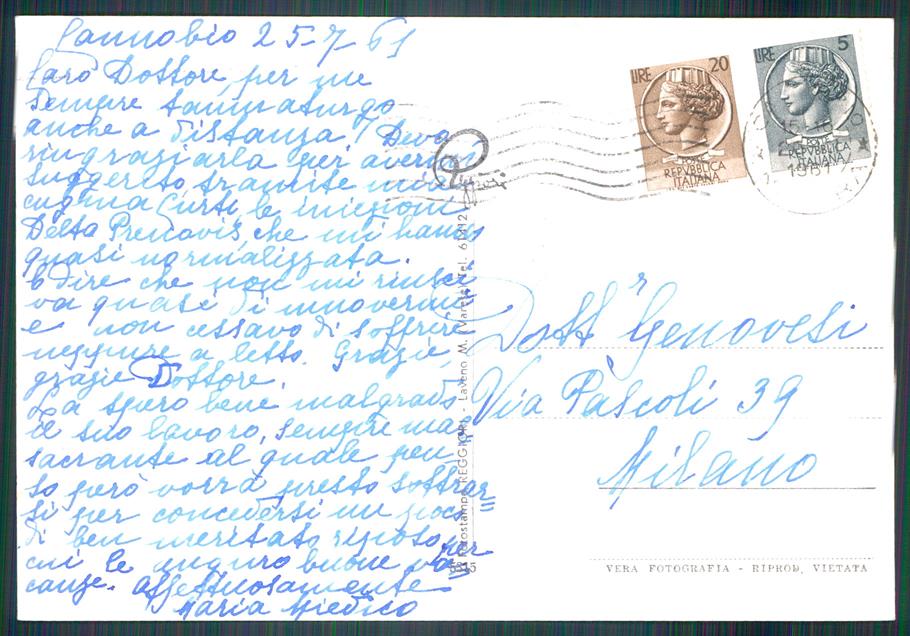 Cannobio 25-7-61
Caro Dottore, per me
sempre taumaturgo
anche a distanza! Devo
ringraziarla per avermi
suggerito tramite mia
cugina Curti le iniezioni
Delta Prenovis, che mi hanno
quasi normalizzata.
e dire che non mi riusci
va quasi di muovermi
e non cessavo di soffrire
neppure a letto. Grazie,
grazie Dottore.
La spero bene malgrado
il suo lavoro, sempre mas
sacrante al quale pen
so però vorrà presto sottrar
si per concedersi un poco
di ben meritato riposo per
cui le auguro buone va
canze. Affettuosamente
Maria Miedico
LIRE 20
REPVBBLICA
ITALIANA
LIRE 5
REPVBBLICA
ITALIANA
1961
Dott. Genovesi
Via Pascoli 39
Milano
Fotostampa REGGIORI - Laveno M. Varese Tel. 61412
VERA FOTOGRAFIA - RIPROD. VIETATA